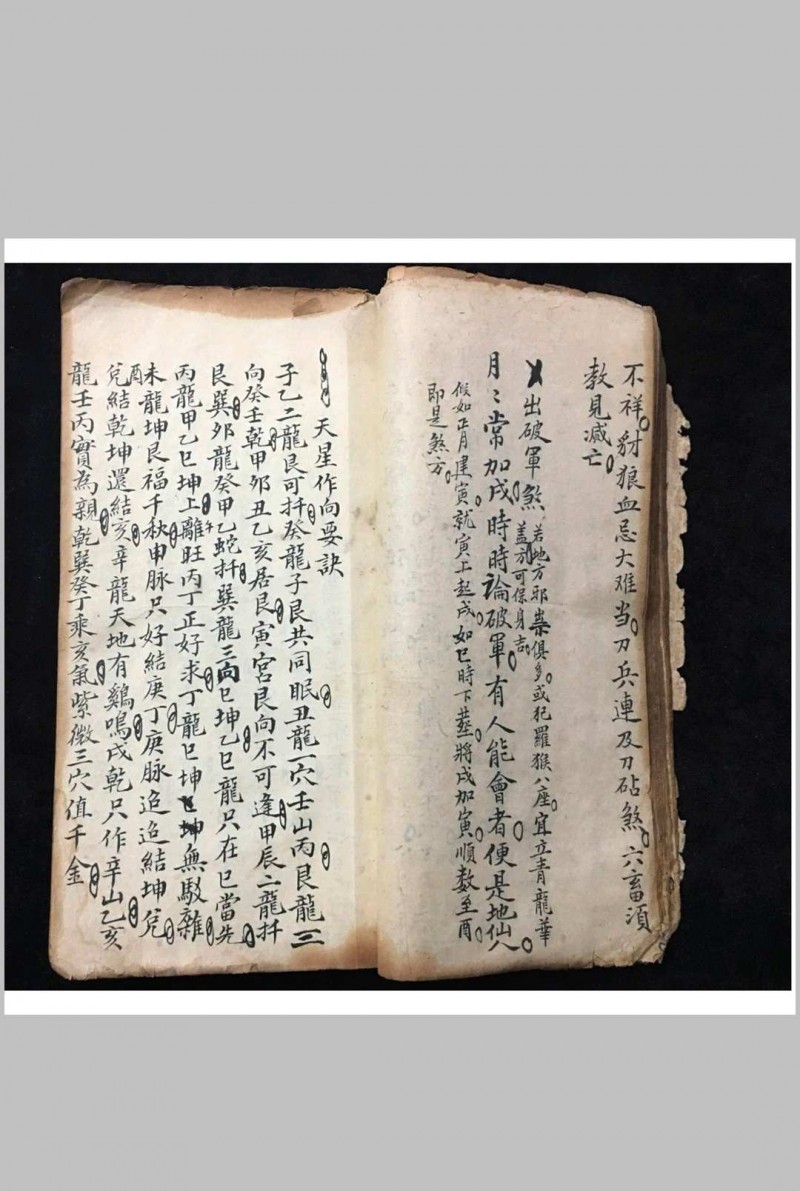 不祥。豺狼血忌大难当。刀兵連及刀砧煞。六畜須
教見减亡。
出破軍煞 若地方邪祟俱多。或犯羅猴八座。宜立青龍華
盖方可保身吉。
月〻常加戌。時時論破軍。有人能會者。便是地仙人。
假如正月建寅。就寅上起戌。如巳時下𦵏。將戌加寅。順数至酉。
即是煞方。
天星作向要訣
子乙二龍艮可扦。癸龍子艮共同眠。丑龍一穴壬山丙。艮龍三
向癸壬乾。甲卯丑乙亥居艮。寅宮艮向不可逢。甲辰二龍扦
艮巽。卯龍癸甲乙蛇扦。巽龍三向巳坤乙。巳龍只在巳當先。
丙龍甲乙巳坤上。離旺丙丁正好求。丁龍巳坤無駁雜。
未龍坤艮福千秋。申脉只好結庚丁。庚脉迢迢結坤兌。
酉兌結乾坤還結亥。辛龍天地有鷄鳴。戌乾只作辛山乙。亥
龍壬丙實為親。乾巽癸丁乘亥氣。紫微三穴值千金。